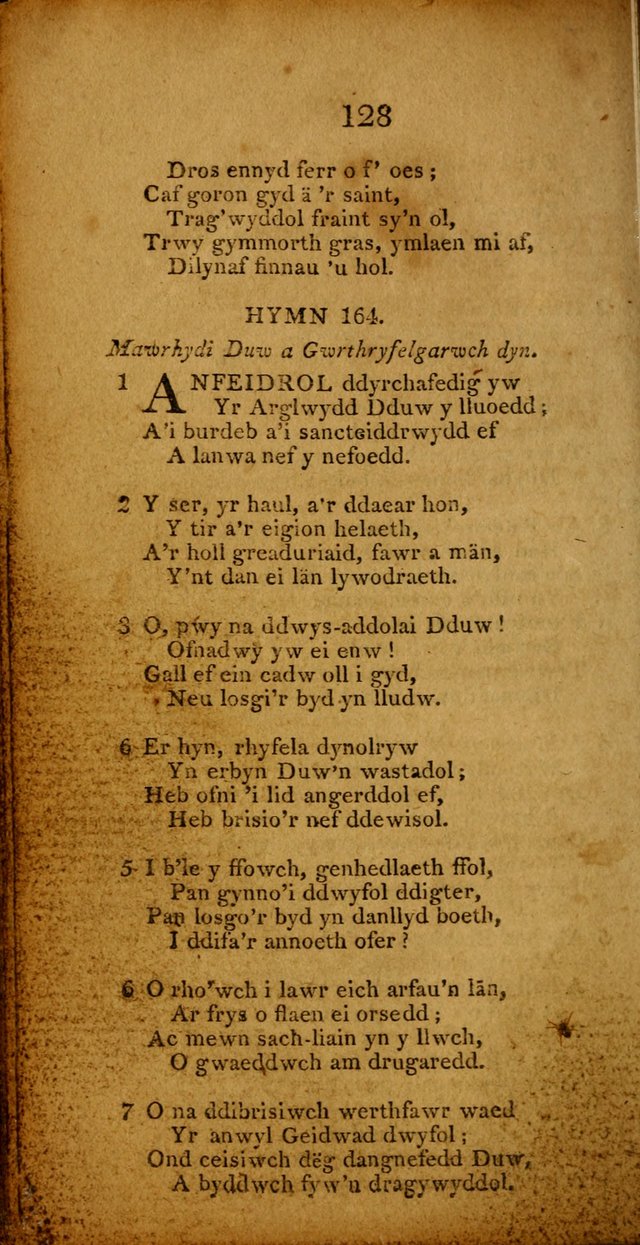 128
Dros ennyd ferr o f' oes ;
Caf goron gyd ä 'r saint,
Trag'wyddol fraint sy'n ol,
Trwy gymmorth gras, ymlaen mi af,
Dilynaf finnau 'u hol.
HYMN 164.
Mawrhydi Duw a Gwrthryfelgarwch dyn.
1 ANFEIDROL ddyrchafedig yw
Yr Arglwydd Dduw y lluoedd ;
A'i burdeb a'i sancteiddrwydd ef
A lanwa nef y nefoedd.
2 Y ser, yr haul, a'r ddaear hon,
Y tir a'r eigion helaeth,
A'r holl greaduriaid, fawr a män,
Y'nt dan ei län lywodraeth.
3 O, pwy na ddwys-addolai Dduw !
Ofnadwy yw ei enw !
Gall ef ein cadw oll i gyd,
Neu losgi'r byd yn lludw.
6 Er hyn, rhyfela dynolryw
Yn erbyn Duw'n wastadol ;
Heb ofni 'i lid angerddol ef,
Heb brisio'r nef ddewisol.
5 I b'le y ffowch, genhedlaeth ffol,
Pan gynno'i ddwyfol ddigter,
Pan losgo'r byd yn danllyd boeth,
I ddifa'r annoeth ofer ?
6 O rho'wch i lawr eich arfau'n län,
Ar frys o flaen ei orsedd ;
Ac mewn sach-liain yn y llwch,
O gwaeddwch am drugaredd.
7 O na ddibrisiwch werthfawr waed
Yr anwyl Geidwad dwyfol ;
Ond ceisiwch dëg dangnefedd Duw,
A byddwch fyw'u dragywyddol.